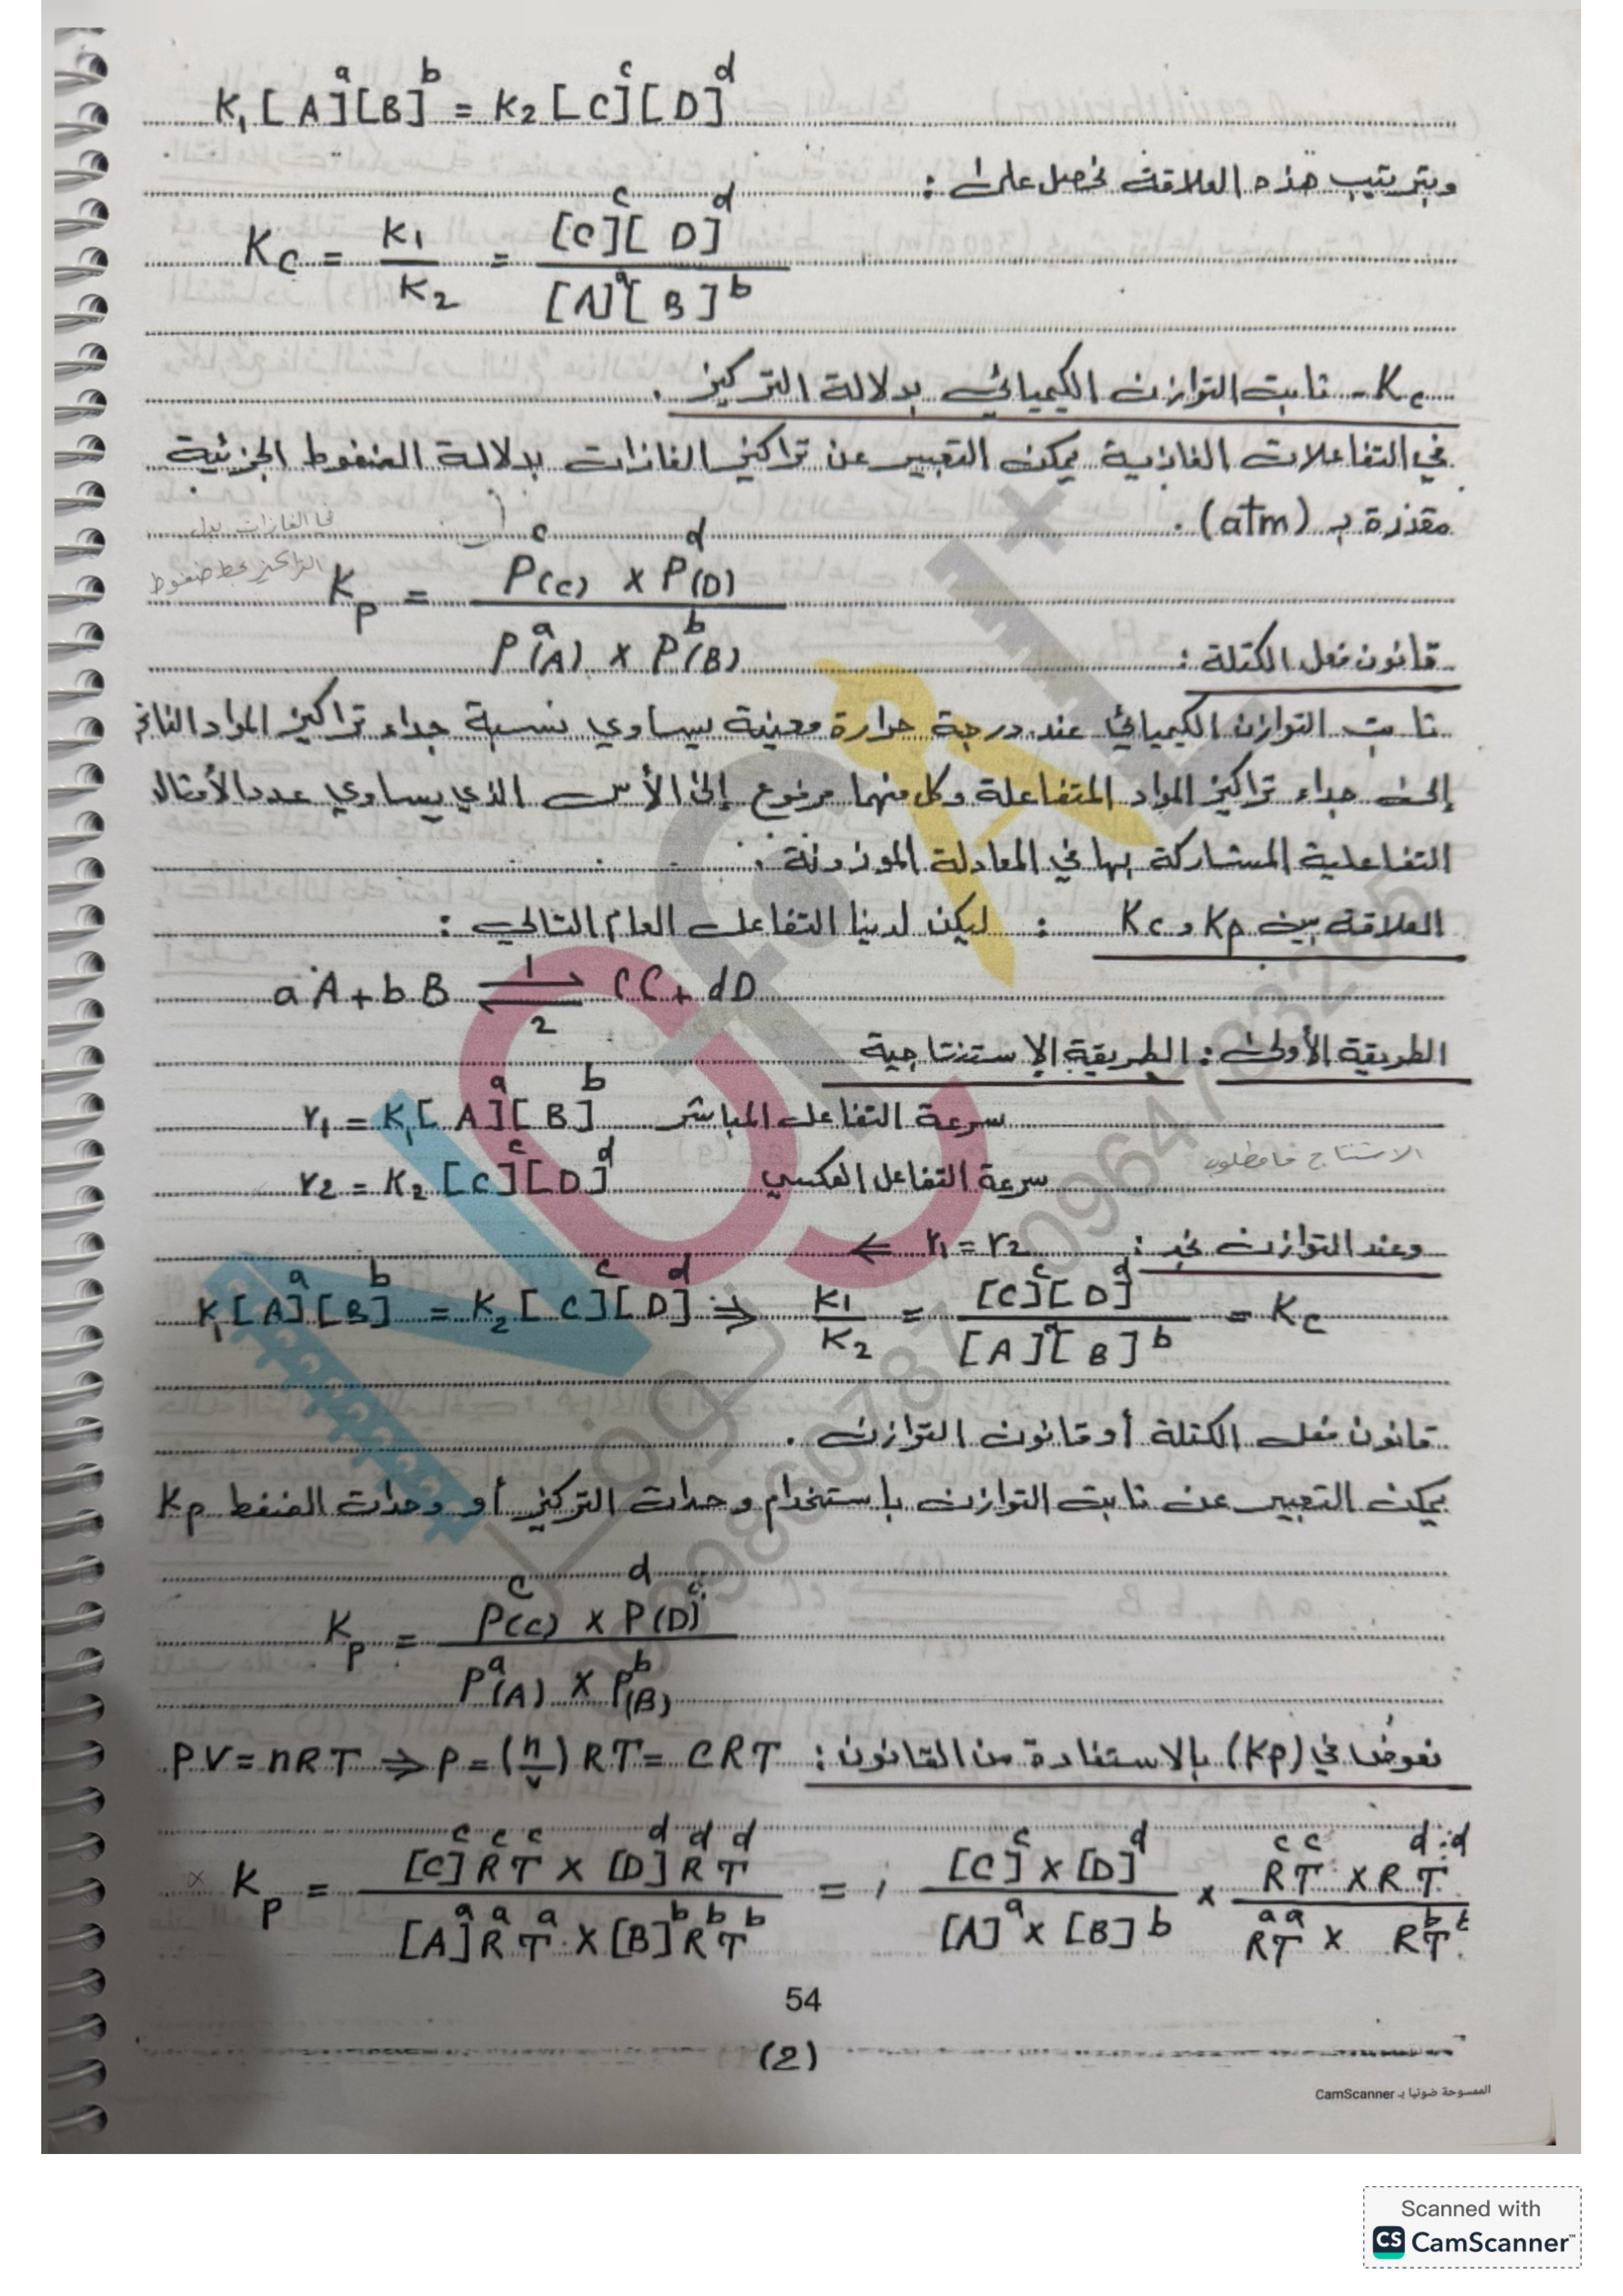 K₁[A]ᵃ[B]ᵇ = K₂[C]ᶜ[D]ᵈ
وبترتيب هذه العلاقة نحصل على :
Kc = K1/K2 = [C]ᶜ[D]ᵈ / [A]ᵃ[B]ᵇ
Kc - ثابت التوازن الكيميائي بدلالة التركيز .
في التفاعلات الغازية يمكن التعبير عن تراكيز الغازات بدلالة الضغوط الجزئية
مقدرة بـ (atm) .
في الغازات بدل
التراكيز نحط ضغوط
Kp = Pᶜ(C) x Pᵈ(D) / Pᵃ(A) x Pᵇ(B)
قانون فعل الكتلة :
ثابت التوازن الكيميائي عند درجة حرارة معينة يساوي نسبة جداء تراكيز المواد الناتج
إلى جداء تراكيز المواد المتفاعلة وكل منهما مرفوع إلى الأس الذي يساوي عدد الأمثال
التفاعلية المشاركة بها في المعادلة الموزونة .
العلاقة بين Kp و Kc : ليكن لدينا التفاعل العام التالي :
aA + bB ⇌ cC + dD
1
2
الطريقة الأولى : الطريقة الاستنتاجية
r₁ = K₁[A]ᵃ[B]ᵇ سرعة التفاعل المباشر
الاستنتاج
r₂ = K₂[C]ᶜ[D]ᵈ سرعة التفاعل العكسي
وعند التوازن نجد : r₁ = r₂ ⇐
K₁[A]ᵃ[B]ᵇ = K₂[C]ᶜ[D]ᵈ ⇒ K1/K2 = [C]ᶜ[D]ᵈ / [A]ᵃ[B]ᵇ = Kc
قانون فعل الكتلة أو قانون التوازن .
يمكن التعبير عن ثابت التوازن باستخدام وحدات التركيز أو وحدات الضغط Kp
Kp = Pᶜ(C) x Pᵈ(D) / Pᵃ(A) x Pᵇ(B)
نعوض في (Kp) بالاستفادة من القانون : PV = nRT ⇒ P = (n/v)RT = CRT
Kp = [C]ᶜRᶜTᶜ x [D]ᵈRᵈTᵈ / [A]ᵃRᵃTᵃ x [B]ᵇRᵇTᵇ = [C]ᶜ x [D]ᵈ / [A]ᵃ x [B]ᵇ x RᶜTᶜ x RᵈTᵈ / RᵃTᵃ x RᵇTᵇ
54
(2)
الممسوحة ضوئيا بـ CamScanner
Scanned with
CS CamScanner™